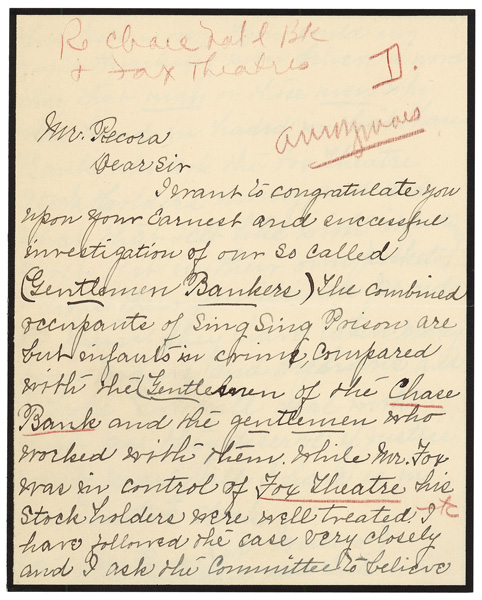 Re Chase Nat'l Bk
& Fox Theatres
D.
anonymous
Mr. Pecora
Dear Sir
I want to congratulate you
upon your Earnest and successful
investigation of our so called
(Gentlemen Bankers) The combined
occupants of Sing Sing Prison are
but infants in crime, Compared
with the (Gentlemen of the Chase
Bank and the gentlemen who
worked with them. While Mr. Fox
was in control of Fox Theatre his
Stock holders were well treated. I
have followed the case very closely
and I ask the Committee to believe